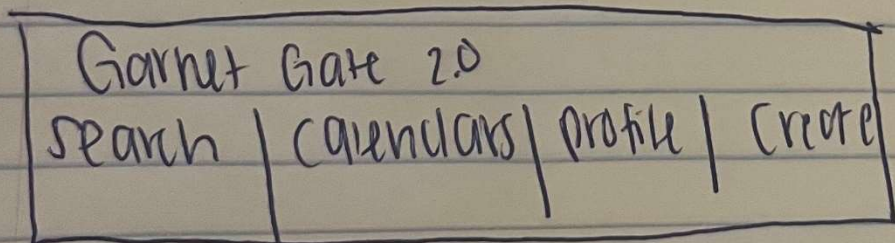 Garnet Gate 2.0
search | calendars | profile | Create